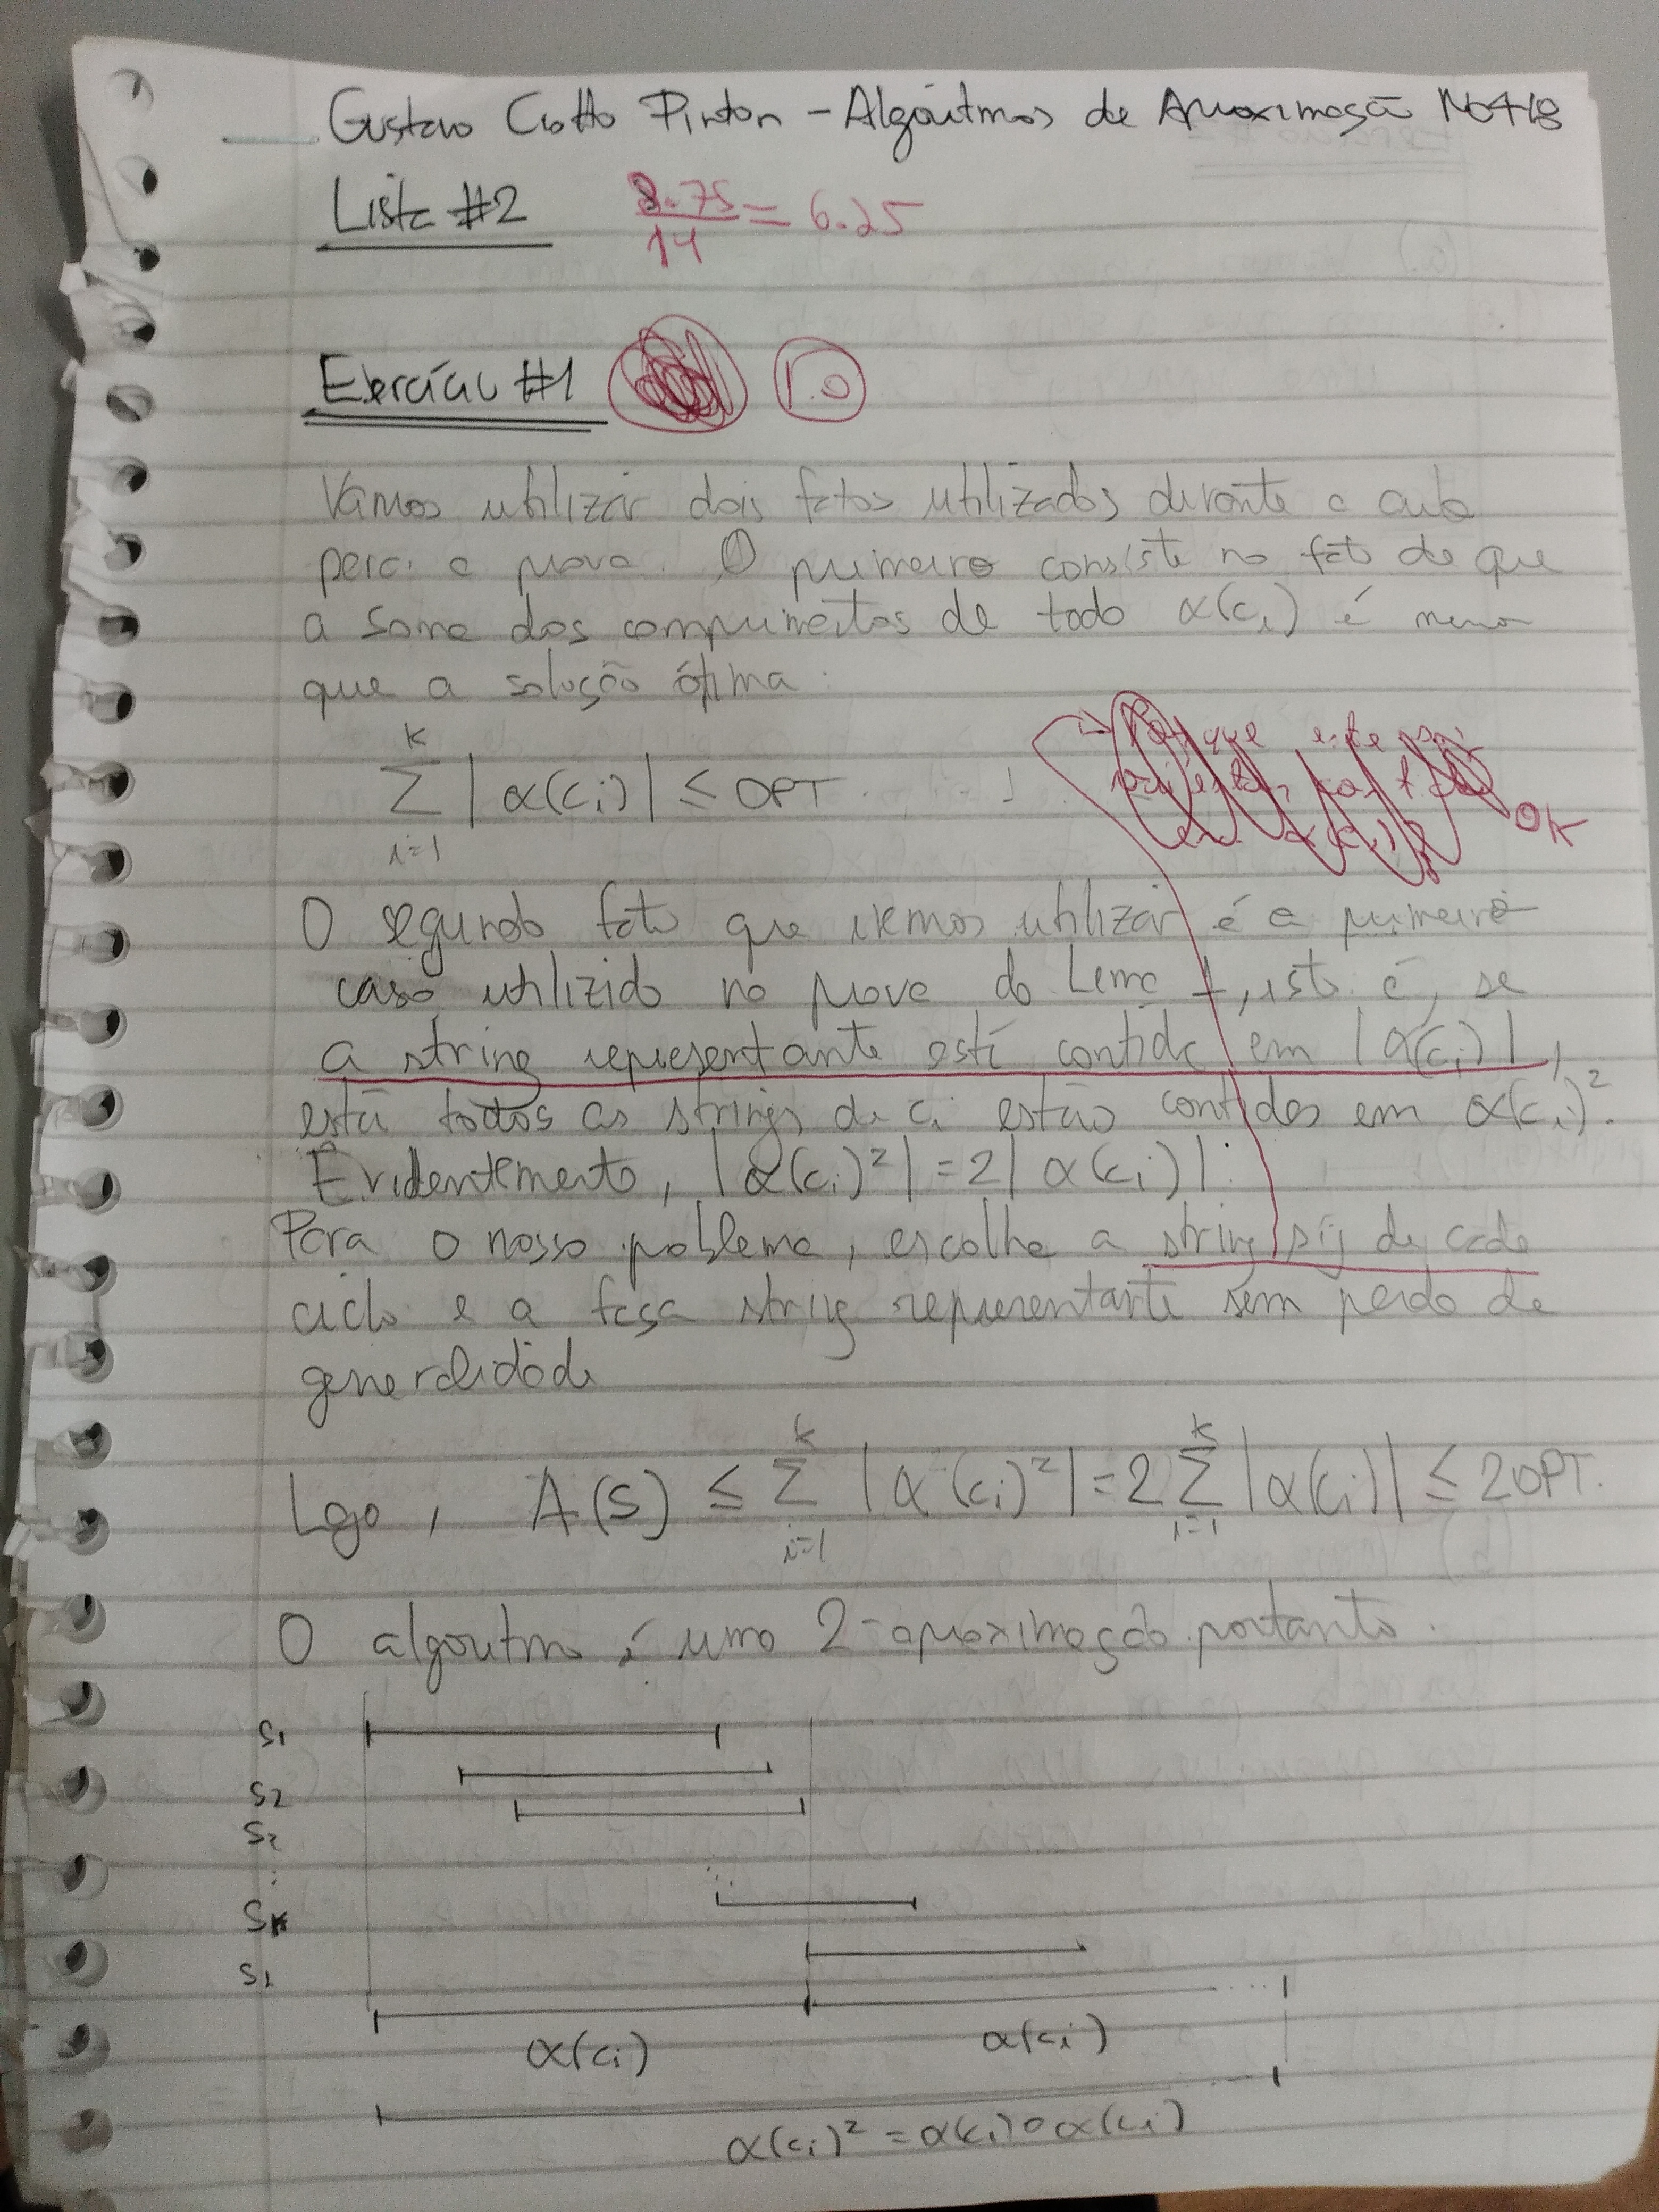 Gustavo Ciotto Pinton - Algoritmos de Aproximação MO418
Lista #2
8.75/14 = 6.25
Exercício #1
1.0
Vamos utilizar dois fatos utilizados durante a aula
para a prova. O primeiro consiste no fato de que
a soma dos comprimentos de todo α(cᵢ) é menor
que a solução ótima:
∑_{i=1}^{k} |α(cᵢ)| ≤ OPT.
OK
O segundo fato que iremos utilizar é o primeiro
caso utilizado na prova do Lema 7, isto é, se
a string representante está contida em |α(cᵢ)|,
então todas as strings de cᵢ estão contidas em α(cᵢ)².
Evidentemente, |α(cᵢ)²| = 2|α(cᵢ)|.
Para o nosso problema, escolha a string sᵢⱼ de cada
ciclo e a faça string representante sem perda de
generalidade
Logo, A(S) ≤ ∑_{i=1}^{k} |α(cᵢ)²| = 2 ∑_{i=1}^{k} |α(cᵢ)| ≤ 2OPT.
O algoritmo é uma 2-aproximação portanto.
S₁
S₂
S₂
⋮
Sₖ
S₁
α(cᵢ) α(cᵢ)
α(cᵢ)² = α(cᵢ)∘α(cᵢ)